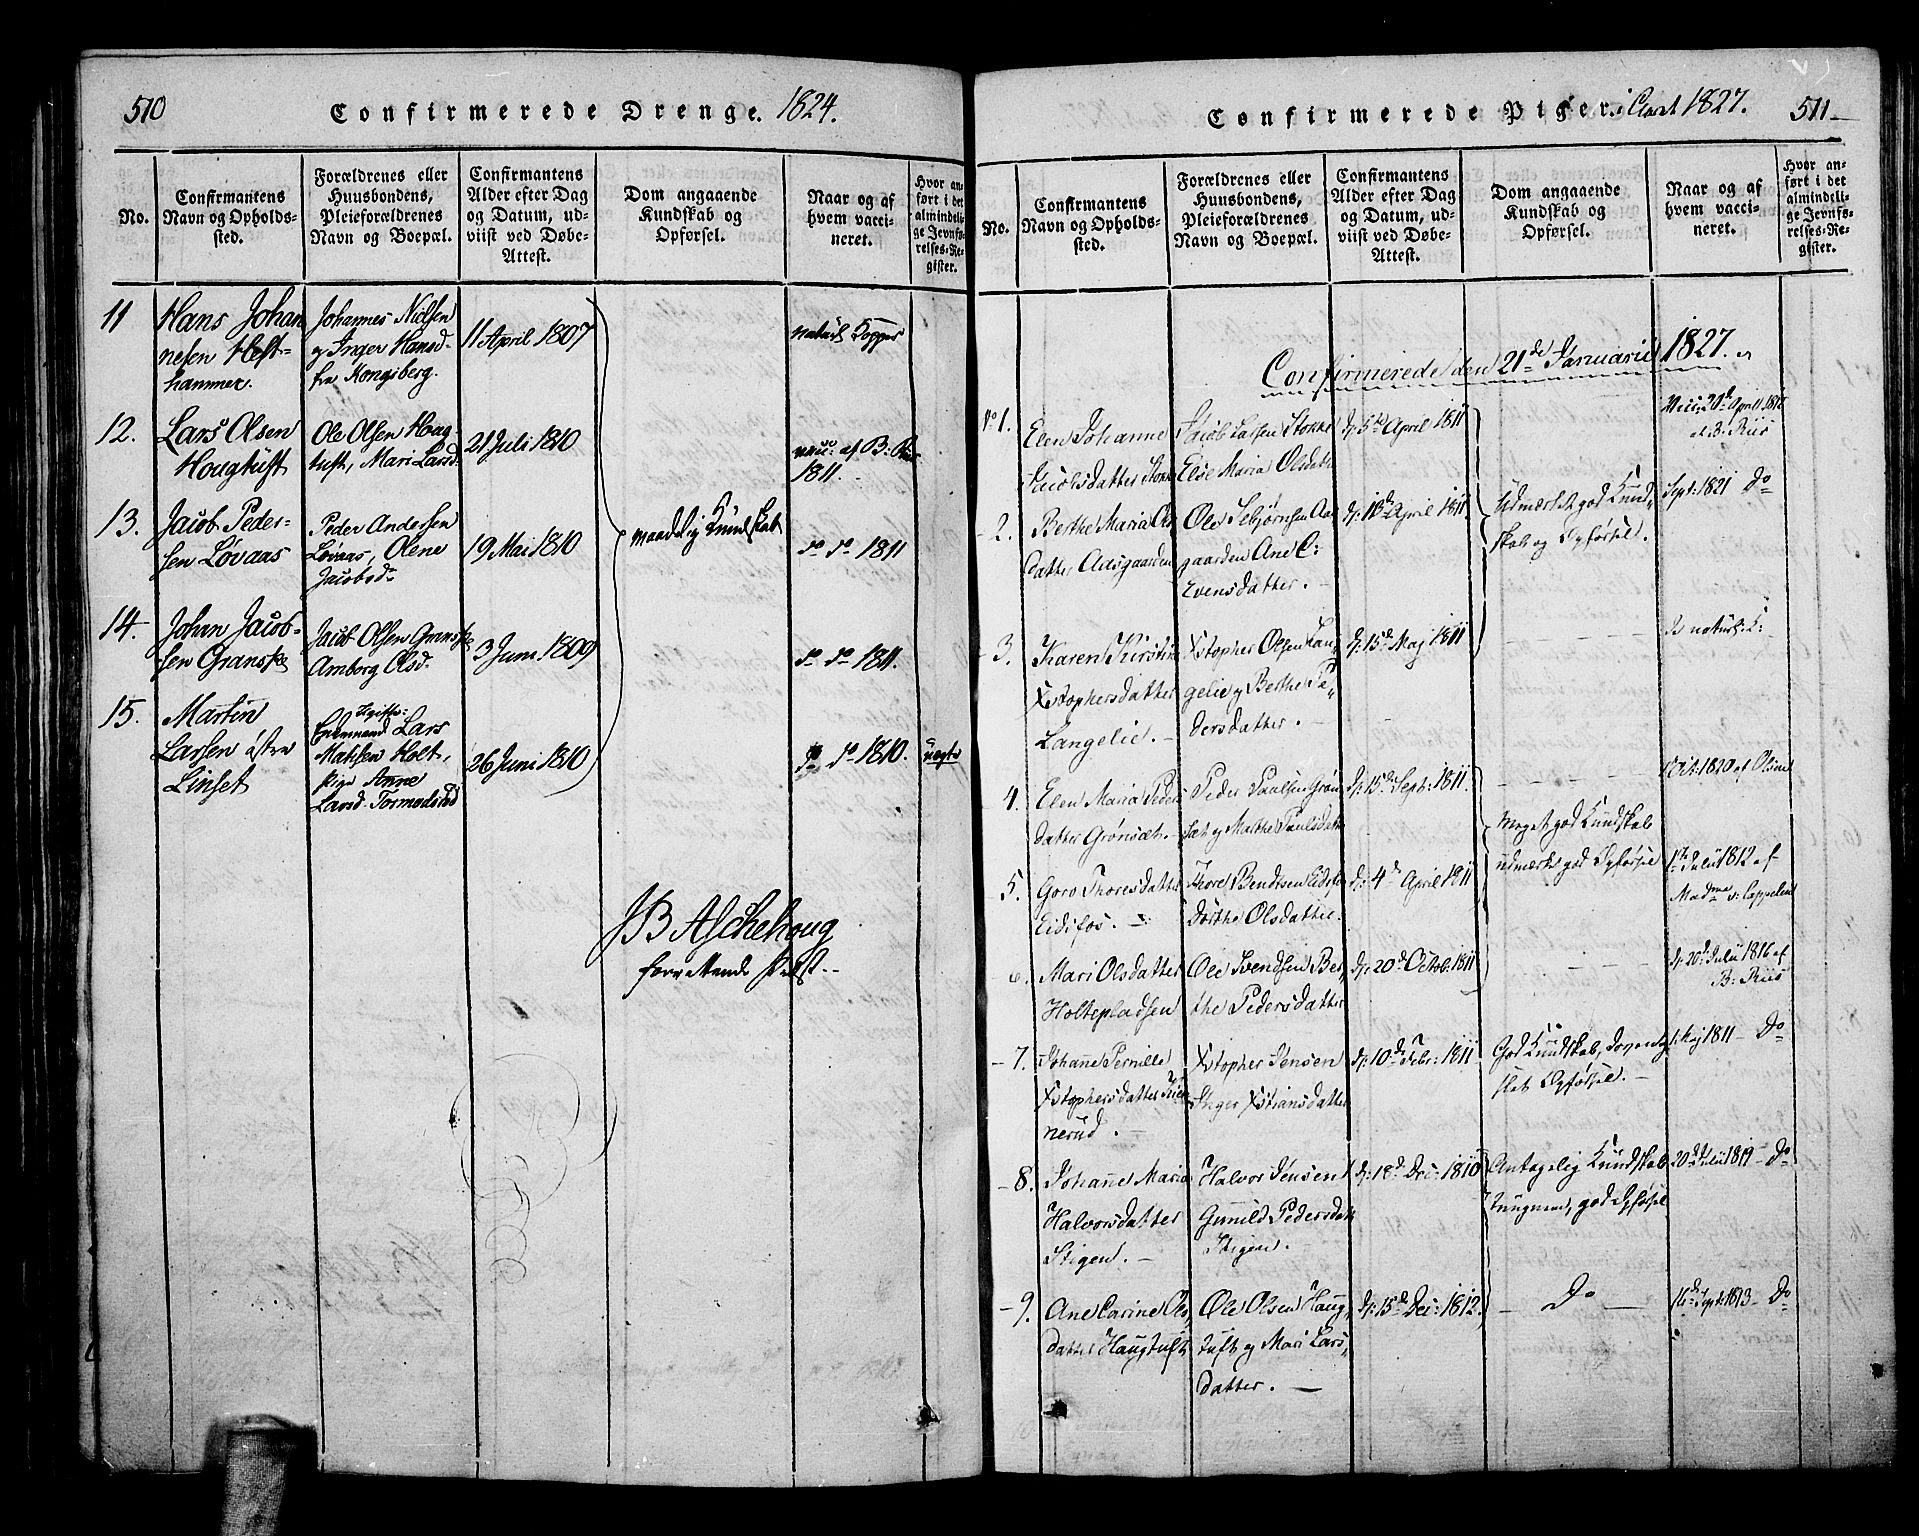 510
Confirmerede Drenge. 1824.
No.
Confirmantens
Navn og Opholds-
sted.
Forældrenes eller
Huusbondens,
Pleieforældrenes
Navn og Boepæl.
Confirmantens
Alder efter Dag
og Datum, ud-
viist ved Døbe-
Attest.
Dom angaaende
Kundskab og
Opførsel.
Naar og af
hvem vacci-
neret.
Hvor an-
ført i det
almindeli-
ge Jevnfø-
relses-Re-
gister.
11
Hans Johan
nesen Hest-
hammer.
Johannes Nielsen
og Inger Hansd-
fra Kongsberg.
11 April 1807
naturl Kopper
12.
Lars Olsen
Hougtuft
Ole Olsen Houg-
tuft, Mari Larsd.
21 Juli 1810
vacc: af B:
1811.
13.
Jacob Peder-
sen Løvaas
Peder Andersen
Løvaas, Olene
Jacobsd
19 Mai 1810
maadelig Kundskab
do do 1811
14.
Johan Jacob-
sen
Jacob Olsen
Amborg Olsd.
3 Juni 1809
do do 1811.
15.
Martin
Larsen østre
Linset
Lars
Matisen Holt,
pige Anne
Larsd. Tormodsrød
26 Juni 1810
do do 1810.
uægte
JB Aschehoug
forrettende Præst.
Confirmerede Piger i Aaret 1827.
511
No.
Confirmantens
Navn og Opholds-
sted.
Forældrenes eller
Huusbondens,
Pleieforældrenes
Navn og Boepæl.
Confirmantens
Alder efter Dag
og Datum, ud-
viist ved Døbe-
Attest.
Dom angaaende
Kundskab og
Opførsel.
Naar og af
hvem vacci-
neret.
Hvor an-
ført i det
almindeli-
ge Jevnfø-
relses-Re-
gister.
Confirmerede den 21de Januarii 1827.
No 1.
Elen Johanne
Jacobsdatter Stokke
Jacob Larsen Stokke
Else Maria Olsdatr
d: 5te April 1811
20de April 1812
af B: Riis
2.
Berthe Maria Ols
datter Aasgaarden
Ole Esbjørnsen Aas
gaarden Ane C:
Evensdatter.
April 1811
Udmærket god Kund-
skab og Opførsel.
Sept: 1821 Do
3.
Karen Kirstine
Xstophersdatter
Langelie.
Xstopher Olsen Lan-
gelie og Berthe Pe-
dersdatter.
d: 15de Maj 1811
naturl: K:
4.
Elen Maria Peders
datter Grønsæt.
Peder Paulsen Grøn
sæt og Malthe Paulsdatr
d: 15de Sept: 1811.
Meget god Kundskab
udmærket god Opførsel
Oct: 1820 af Olsen
5.
Goro Thoresdatter
Eidsfos.
Thore Bendtsen Eidsfos
Dorthe Olsdatter.
d: 4de April 1811
1te Julii 1812 af
Madme v: Cappelen
6.
Mari Olsdatter
Holtepladsen
Ole Svendsen Ber-
the Pedersdatter
d: 20de Octob: 1811
d: 20de Julii 1816 af
B: Riis
7.
Johanne Pernille
Xstophersdatter
nerud.
Xstopher Jensen
Inger Xstiansdatter
d: 10de Febr: 1811
God Kundskab,
Opførsel.
Maj 1811 - Do
8.
Johanne Maria
Halvorsdatter
Stigen.
Halvor Jensen
Gunild Pedersdatr
Stigen.
d: 18de Dec: 1810
Antagelig Kundskab
god Opførsel
20de Julii 1819 - Do
9.
Ane Carine Ols
datter Haugtuft
Ole Olsen Haug
tuft og Mari Lars
datter.
d: 15de Dec: 1812.
Do
16de Sept: 1813 - Do